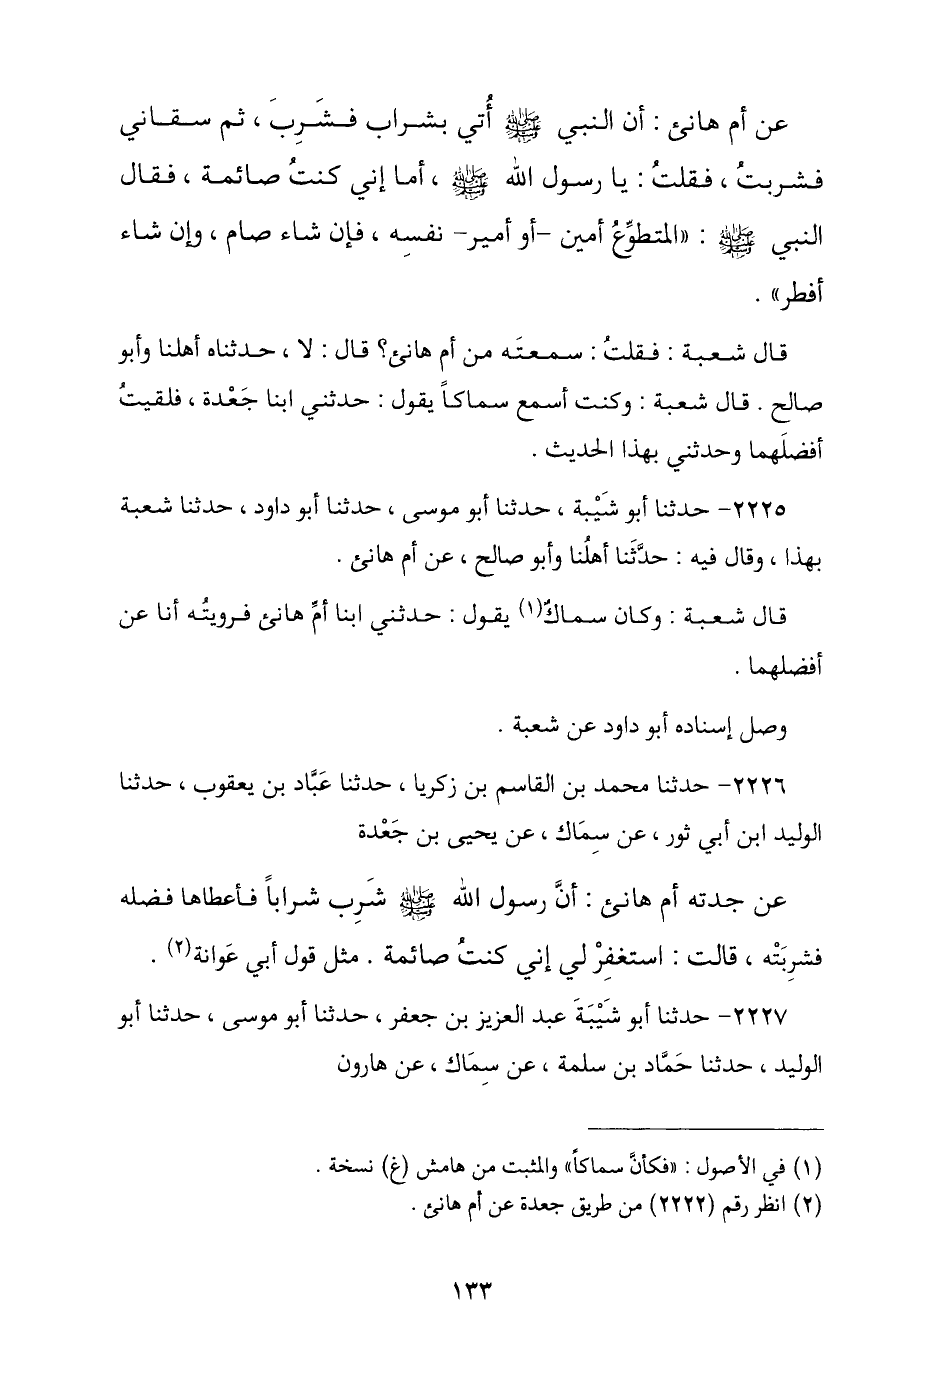 عن أم هانئ : أن النبي ﷺ أُتي بشراب فشَرِبَ ، ثم سقاني
فشربتُ ، فقلتُ : يا رسول الله ﷺ ، أما إني كنتُ صائمة ، فقال
النبي ﷺ : «المتطوِّعُ أمين -أو أمير- نفسِه ، فإن شاء صام ، وإن شاء
أفطر» .
قال شعبة : فقلتُ : سمعتَه من أم هانئ؟ قال : لا ، حدثناه أهلنا وأبو
صالح . قال شعبة : وكنت أسمع سماكاً يقول : حدثني ابنا جَعْدة ، فلقيتُ
أفضلَهما وحدثني بهذا الحديث .
٢٢٢٥- حدثنا أبو شَيْبة ، حدثنا أبو موسى ، حدثنا أبو داود ، حدثنا شعبة
بهذا ، وقال فيه : حدَّثَنا أهلُنا وأبو صالح ، عن أم هانئ .
قال شعبة : وكان سماكٌ(١) يقول : حدثني ابنا أمِّ هانئ فرويتُه أنا عن
أفضلهما .
وصل إسناده أبو داود عن شعبة .
٢٢٢٦- حدثنا محمد بن القاسم بن زكريا ، حدثنا عَبَّاد بن يعقوب ، حدثنا
الوليد ابن أبي ثور ، عن سِمَاك ، عن يحيى بن جَعْدة
عن جدته أم هانئ : أنَّ رسول الله ﷺ شَرِب شراباً فأعطاها فضله
فشرِبَتْه ، قالت : استغفِرْ لي إني كنتُ صائمة . مثل قول أبي عَوانة(٢) .
٢٢٢٧- حدثنا أبو شَيْبَةَ عبد العزيز بن جعفر ، حدثنا أبو موسى ، حدثنا أبو
الوليد ، حدثنا حَمَّاد بن سلمة ، عن سِمَاك ، عن هارون
(١) في الأصول : «فكأنَّ سماكاً» والمثبت من هامش (غ) نسخة .
(٢) انظر رقم (٢٢٢٢) من طريق جعدة عن أم هانئ .
١٣٣